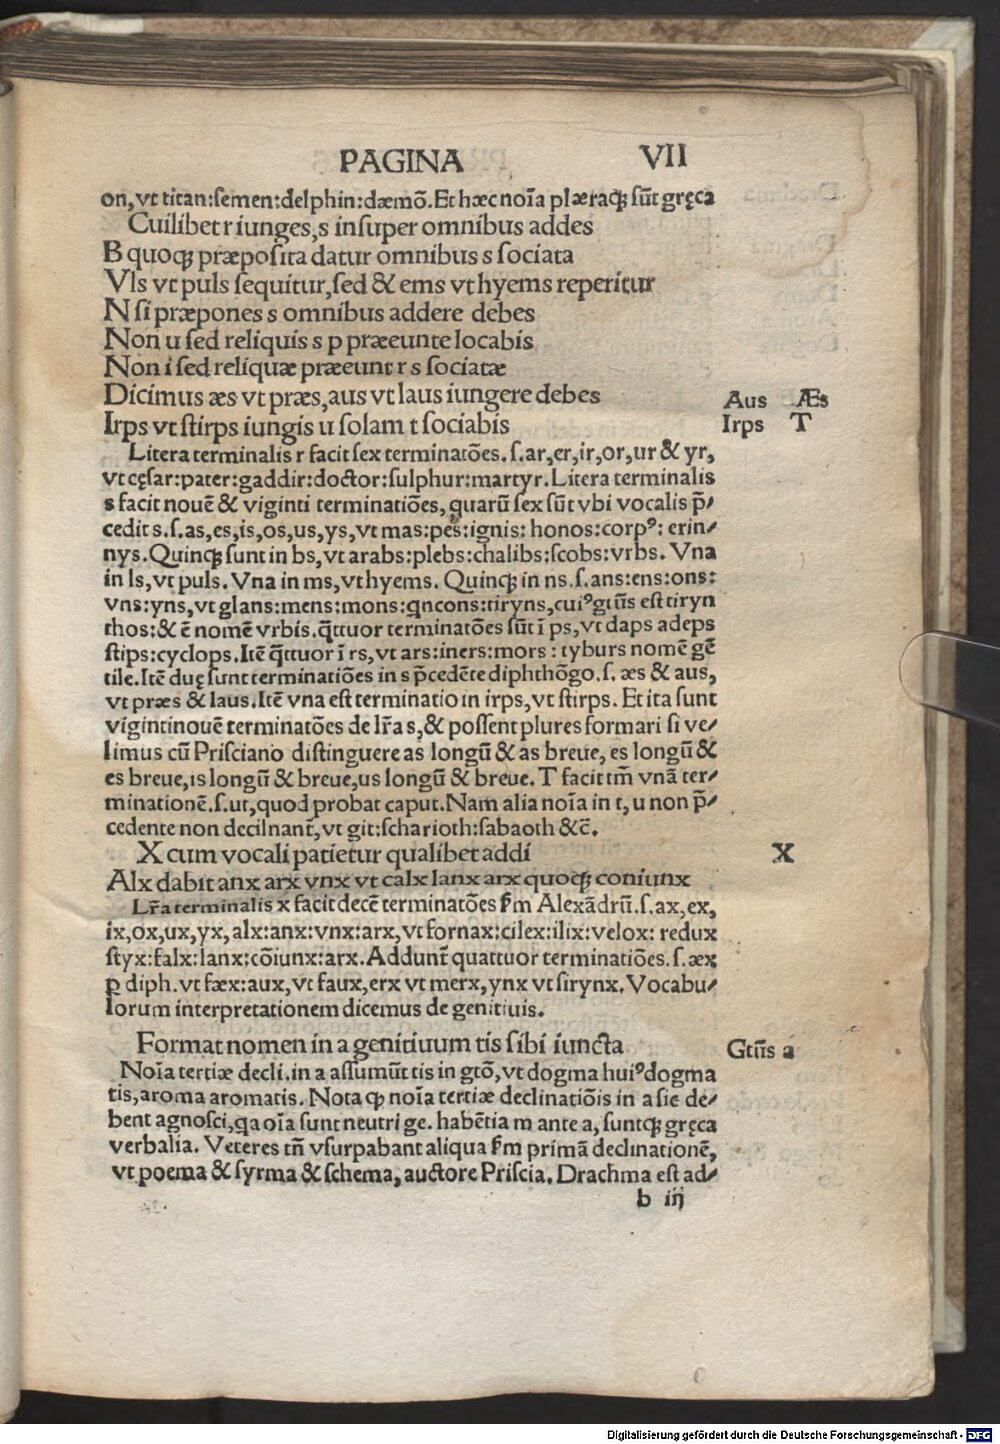 PAGINA VII
on,vt titan:ſemen:delphin:dæmō.Et hæc noīa pleraqꝫ ſūt gręca
Cuilibet r iunges,s inſuper omnibus addes
B quoqꝫ præpoſita datur omnibus s ſociata
Vls vt puls ſequitur,ſed & ems vt hyems reperitur
N ſi præpones s omnibus addere debes
Non u ſed reliquis s p præeunte locabis
Non i ſed reliquæ præeunt r s ſociatæ
Dicimus æs vt præs,aus vt laus iungere debes Aus Æs
Irps vt ſtirps iungis u ſolam t ſociabis Irps T
Litera terminalis r facit ſex terminatōes.ſ.ar,er,ir,or,ur & yr,
vt cęſar:pater:gaddir:doctor:ſulphur:martyr.Litera terminalis
s facit nouē & viginti terminatiōes,quarū ſex ſūt vbi vocalis p̄⸗
cedit s.ſ.as,es,is,os,us,ys,vt mas:pes:ignis: honos:corpꝰ: erin⸗
nys.Quinqꝫ ſunt in bs,vt arabs:plebs:chalibs:ſcobs:vrbs. Vna
in ls,vt puls. Vna in ms,vt hyems. Quinqꝫ in ns.ſ.ans:ens:ons:
vns:yns,vt glans:mens:mons:qncons:tiryns,cuiꝰ gtiūs eſt tiryn
thos:& ē nomē vrbis.q̄ttuor terminatōes ſūt ī ps,vt daps adeps
ſtips:cyclops.Itē q̄ttuor ī rs,vt ars:iners:mors : tyburs nomē gē
tile.Itē duę ſunt terminatiōes in s p̄cedēte diphthōgo.ſ. æs & aus,
vt præs & laus.Itē vna eſt terminatio in irps,vt ſtirps. Et ita ſunt
vigintinouē terminatōes de lr̄a s,& poſſent plures formari ſi ve⸗
limus cū Priſciano diſtinguere as longū & as breue, es longū &
es breue,is longū & breue,us longū & breue. T facit tm̄ vnā ter⸗
minationē.ſ.ut,quod probat caput.Nam alia noīa in t, u non p̄⸗
cedente non declinant̄,vt git:ſcharioth:ſabaoth &c̄.
X cum vocali patietur qualibet addi X
Alx dabit anx arx vnx vt calx lanx arx quoqꝫ coniunx
Lr̄a terminalis x facit decē terminatōes ſm̄ Alexādrū.ſ.ax,ex,
ix,ox,ux,yx,alx:anx:vnx:arx,vt fornax:cilex:ilix:velox: redux
ſtyx:falx:lanx:cōiunx:arx.Addunt̄ quattuor terminatiōes.ſ.æx
ꝑ diph.vt fæx:aux,vt faux,erx vt merx,ynx vt ſirynx. Vocabu⸗
lorum interpretationem dicemus de genitiuis.
Format nomen in a genitiuum tis ſibi iuncta Gtiūs a
Noīa tertiæ decli.in a aſſumūt tis in gtō,vt dogma huiꝰ dogma
tis,aroma aromatis. Nota ꝙ noīa tertiæ declinatiōis in a ſic de⸗
bent agnoſci,qa oīa ſunt neutri ge. habētia m ante a, ſuntqꝫ gręca
verbalia. Veteres tn̄ vſurpabant aliqua ſm̄ primā declinationē,
vt poema & ſyrma & ſchema, auctore Priſcia. Drachma eſt ad⸗
b iij
Digitalisierung gefördert durch die Deutsche Forschungsgemeinschaft - DFG